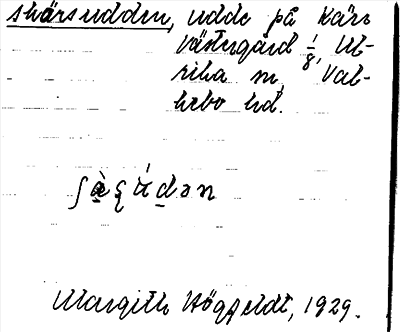 skärsudden, udde på Kärr
Västergård 1/8, Ul-
rika sn, Val-
kebo hd.
Margith Högfeldt, 1929.